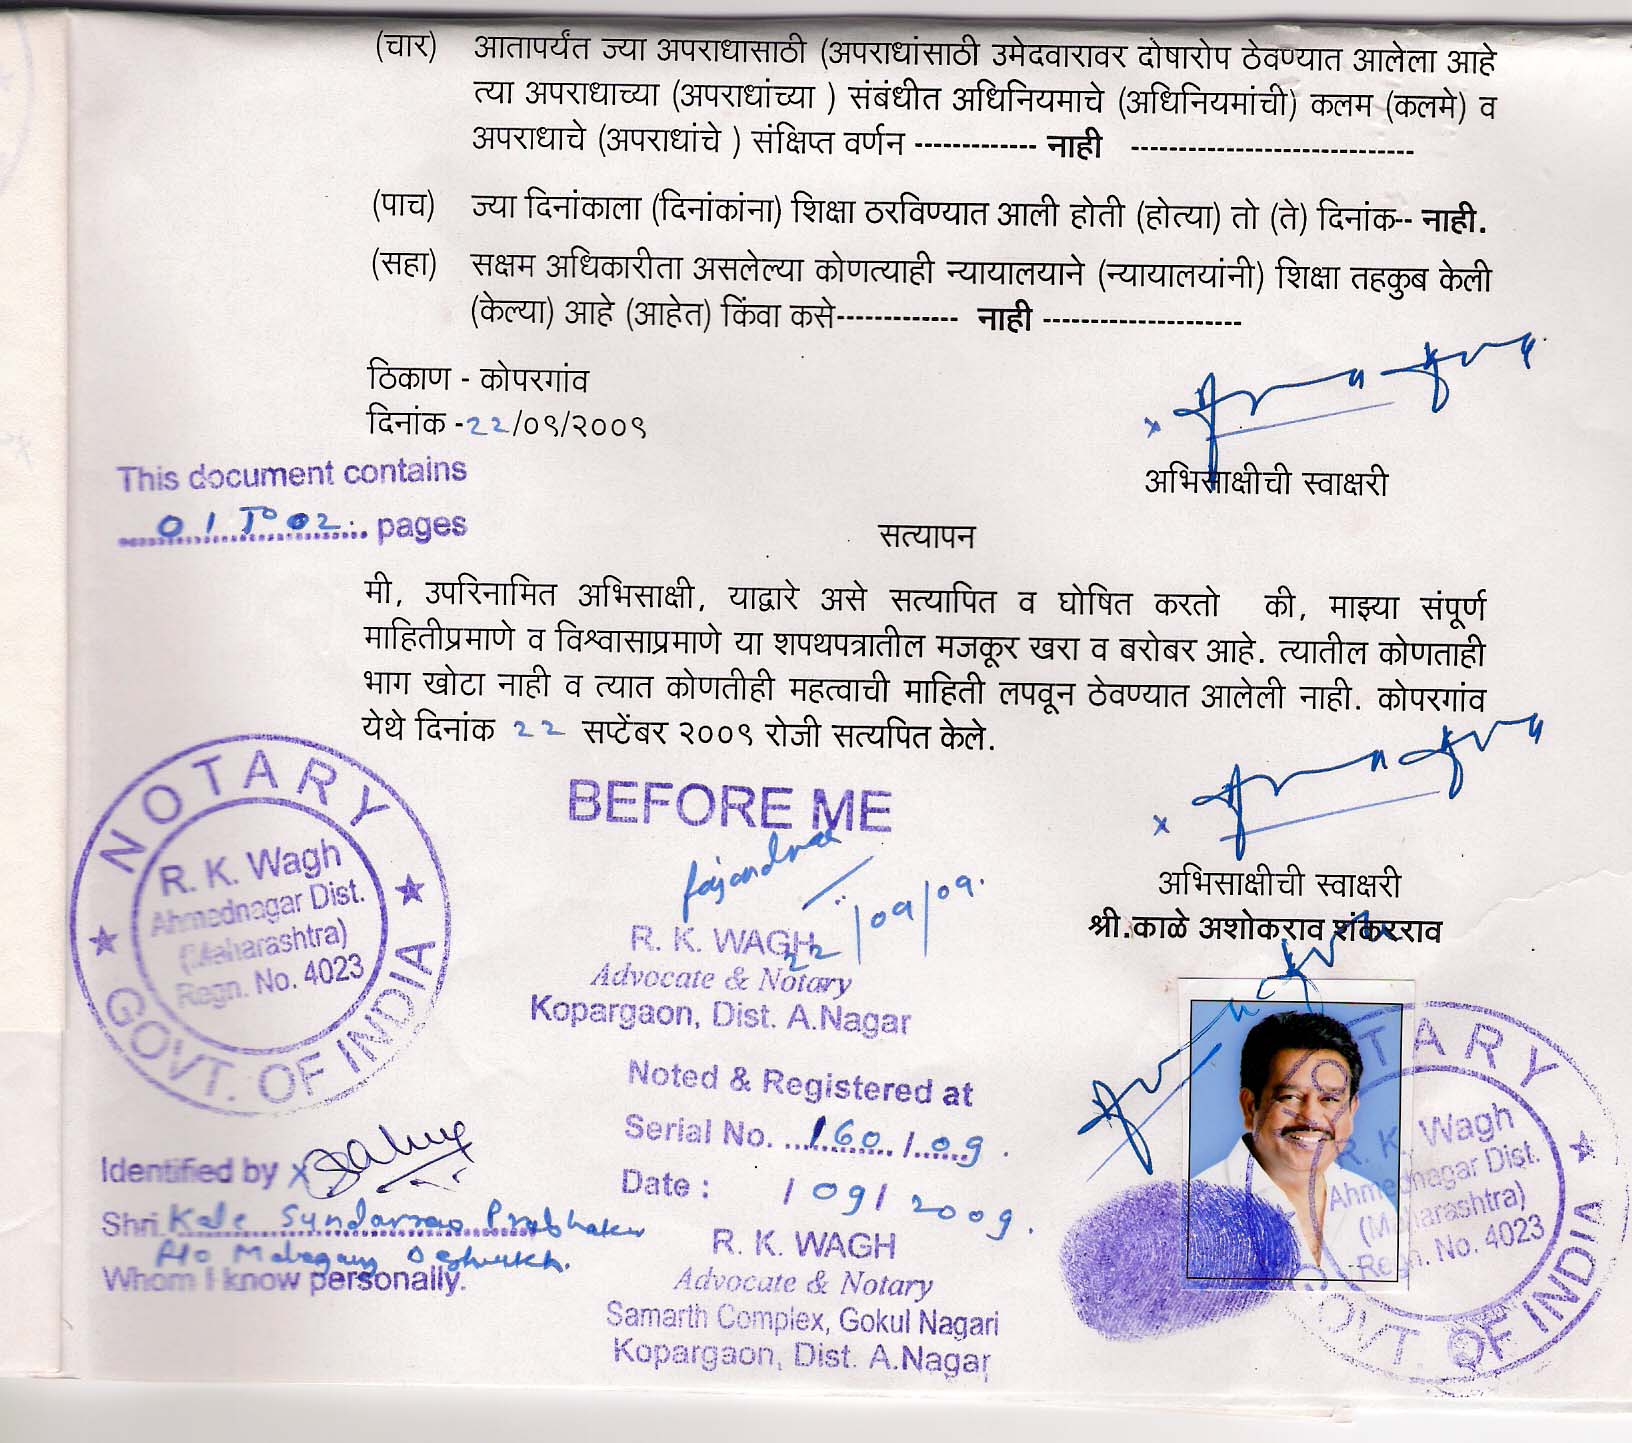 (चार) आतापर्यंत ज्या अपराधासाठी (अपराधांसाठी उमेदवारावर दोषारोप ठेवण्यात आलेला आहे
त्या अपराधाच्या (अपराधांच्या ) संबंधीत अधिनियमाचे (अधिनियमांची) कलम (कलमे) व
अपराधाचे (अपराधांचे ) संक्षिप्त वर्णन ------------- नाही ------------------------------
(पाच) ज्या दिनांकाला (दिनांकांना) शिक्षा ठरविण्यात आली होती (होत्या) तो (ते) दिनांक-- नाही.
(सहा) सक्षम अधिकारीता असलेल्या कोणत्याही न्यायालयाने (न्यायालयांनी) शिक्षा तहकुब केली
(केल्या) आहे (आहेत) किंवा कसे------------- नाही ---------------------
ठिकाण - कोपरगांव
दिनांक -22/०९/२००९
This document contains
01 To 02 pages
अभिसाक्षीची स्वाक्षरी
सत्यापन
मी, उपरिनामित अभिसाक्षी, याद्वारे असे सत्यापित व घोषित करतो की, माझ्या संपूर्ण
माहितीप्रमाणे व विश्वासाप्रमाणे या शपथपत्रातील मजकूर खरा व बरोबर आहे. त्यातील कोणताही
भाग खोटा नाही व त्यात कोणतीही महत्वाची माहिती लपवून ठेवण्यात आलेली नाही. कोपरगांव
येथे दिनांक 22 सप्टेंबर २००९ रोजी सत्यपित केले.
NOTARY
R. K. Wagh
Ahmednagar Dist.
(Maharashtra)
Regn. No. 4023
GOVT. OF INDIA
BEFORE ME
22/09/09.
R. K. WAGH
Advocate & Notary
Kopargaon, Dist. A.Nagar
अभिसाक्षीची स्वाक्षरी
श्री.काळे अशोकराव शंकरराव
Noted & Registered at
Serial No. 160/09.
Date : /09/2009.
R. K. WAGH
Advocate & Notary
Samarth Complex, Gokul Nagari
Kopargaon, Dist. A.Nagar
Identified by x
Shri. Kale Sundarrao Prabhakar
Whom I know personally.
NOTARY
R. K. Wagh
Ahmednagar Dist.
(Maharashtra)
Regn. No. 4023
GOVT. OF INDIA